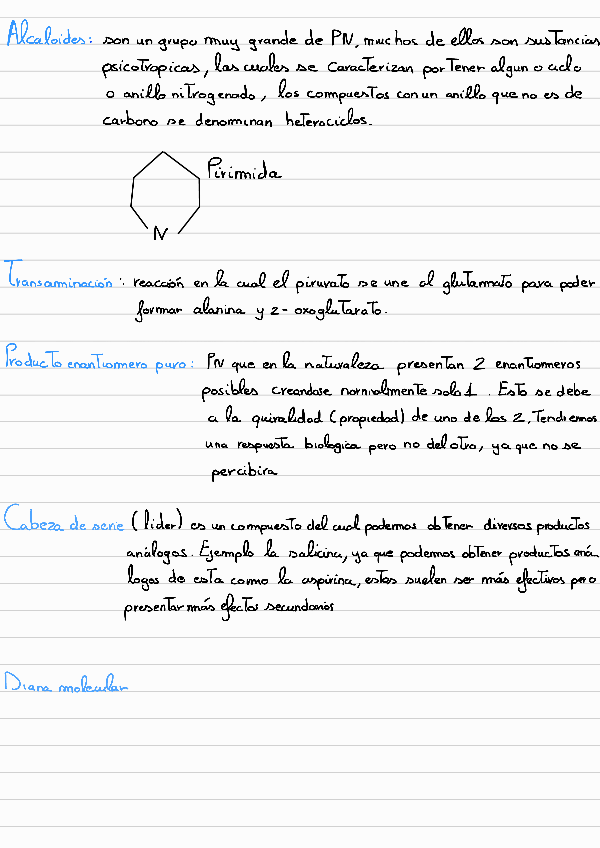 Alcaloides: son un grupo muy grande de PN, muchos de ellos son sustancias
psicotropicas, las cuales se caracterizan por tener algun o ciclo
o anillo nitrogenado, los compuestos con un anillo que no es de
carbono se denominan heterociclos.
Pirimida
N
Transaminación: reacción en la cual el piruvato se une al glutamato para poder
formar alanina y 2-oxoglutarato.
Producto enantiomero puro: PN que en la naturaleza presentan 2 enantiomeros
posibles creandose normalmente solo 1. Esto se debe
a la quiralidad (propiedad) de uno de los 2. Tendremos
una respuesta biologica pero no del otro, ya que no se
percibira
Cabeza de serie (lider) es un compuesto del cual podemos obtener diversos productos
análogos. Ejemplo la salicina, ya que podemos obtener productos aná
logos de esta como la aspirina, estas suelen ser más efectivos pero
presentar más efectos secundarios
Diana molecular